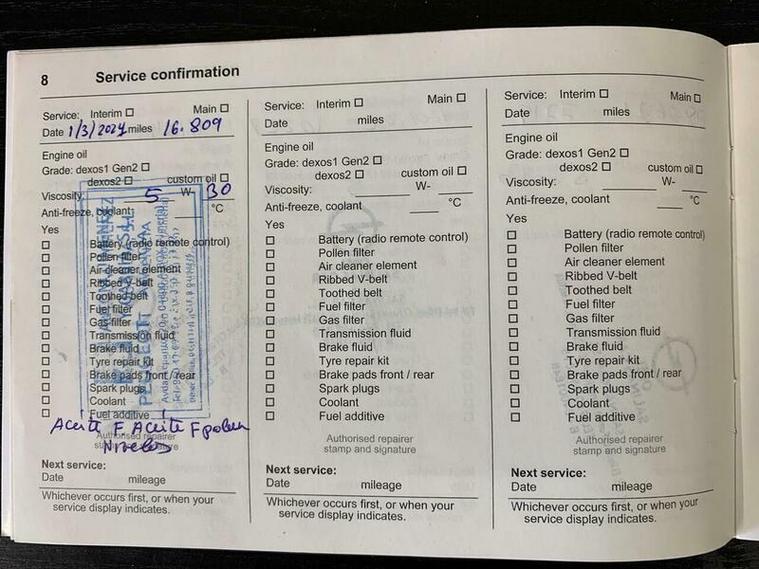 8 Service confirmation
Service: Interim ☐ Main ☐
Date 1/3/2024 miles 16.809
Engine oil
Grade: dexos1 Gen2 ☐
dexos2 ☐ custom oil ☐
Viscosity: 5 W- 30
Anti-freeze, coolant °C
Yes
☐ Battery (radio remote control)
☐ Pollen filter
☐ Air cleaner element
☐ Ribbed V-belt
☐ Toothed belt
☐ Fuel filter
☐ Gas filter
☐ Transmission fluid
☐ Brake fluid
☐ Tyre repair kit
☐ Brake pads front / rear
☐ Spark plugs
☐ Coolant
☐ Fuel additive
PEUGEOT
Aceite F Aceite F polen
Niveles
Authorised repairer
stamp and signature
Next service:
Date mileage
Whichever occurs first, or when your
service display indicates.
Service: Interim ☐ Main ☐
Date miles
Engine oil
Grade: dexos1 Gen2 ☐
dexos2 ☐ custom oil ☐
Viscosity: W-
Anti-freeze, coolant °C
Yes
☐ Battery (radio remote control)
☐ Pollen filter
☐ Air cleaner element
☐ Ribbed V-belt
☐ Toothed belt
☐ Fuel filter
☐ Gas filter
☐ Transmission fluid
☐ Brake fluid
☐ Tyre repair kit
☐ Brake pads front / rear
☐ Spark plugs
☐ Coolant
☐ Fuel additive
Authorised repairer
stamp and signature
Next service:
Date mileage
Whichever occurs first, or when your
service display indicates.
Service: Interim ☐ Main ☐
Date miles
Engine oil
Grade: dexos1 Gen2 ☐
dexos2 ☐ custom oil ☐
Viscosity: W-
Anti-freeze, coolant °C
Yes
☐ Battery (radio remote control)
☐ Pollen filter
☐ Air cleaner element
☐ Ribbed V-belt
☐ Toothed belt
☐ Fuel filter
☐ Gas filter
☐ Transmission fluid
☐ Brake fluid
☐ Tyre repair kit
☐ Brake pads front / rear
☐ Spark plugs
☐ Coolant
☐ Fuel additive
Authorised repairer
stamp and signature
Next service:
Date mileage
Whichever occurs first, or when your
service display indicates.